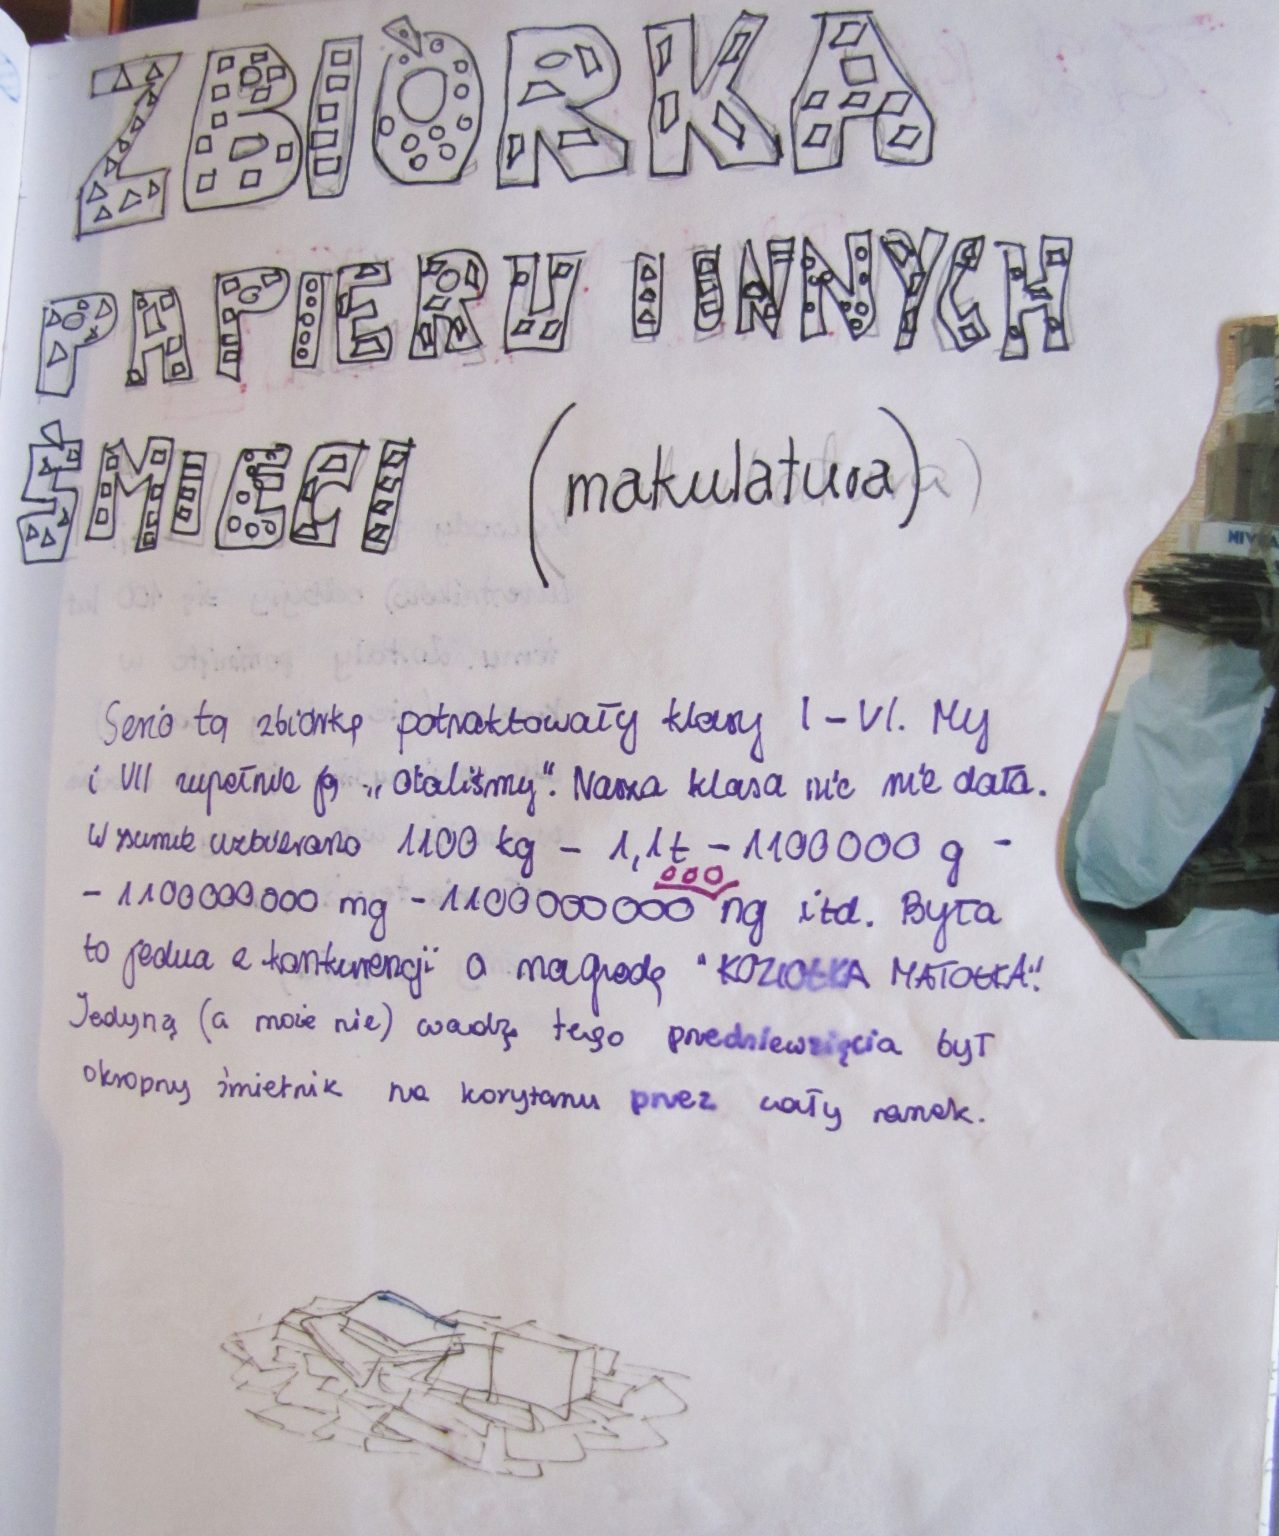 ZBIÓRKA
PAPIERU I INNYCH
ŚMIECI (makulatura)
NIVEA
Serio tą zbiórkę potraktowały klasy I - VI. My
i VII zupełnie ją „olaliśmy". Nasza klasa nic nie dała.
W sumie uzbierano 1100 kg - 1,1t - 1100000 g -
- 1100000000 mg - 1100000000 000 ng itd. Była
to jedna z konkurencji o nagrodę "KOZIOŁKA MATOŁKA"!
Jedyną (a może nie) wadzę tego przedsiewzięcia był
okropny śmietnik na korytarzu przez cały ranek.